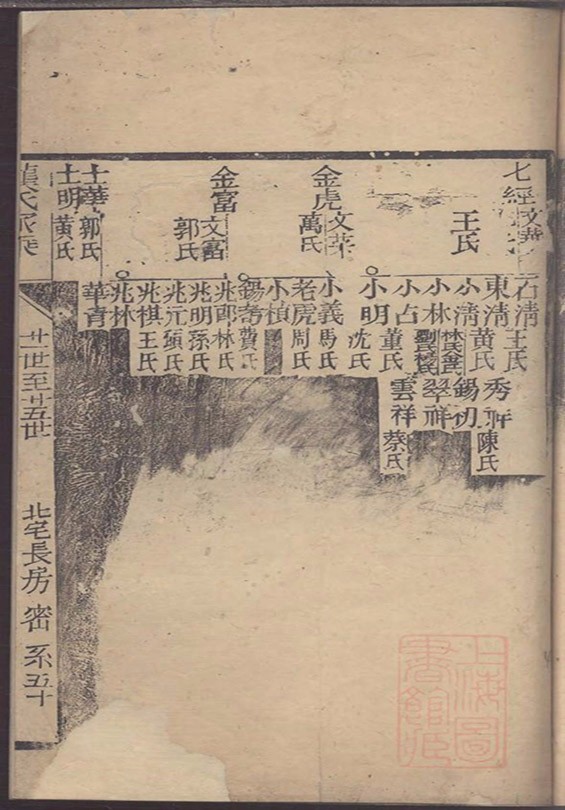 七經
王氏
金虎
文葉
萬氏
金富
文富
郭氏
士華
郭氏
士明
黃氏
石清
王氏
東清
黃氏
小清
林氏
小林
小占
董氏
小明
沈氏
小義
馬氏
老虎
周氏
小楨
費氏
兆郎
林氏
兆明
孫氏
兆元
兆棋
王氏
兆林
華青
秀
陳氏
錫初
翠祥
雲祥
蔡氏
廿一世至廿五世
北宅長房
密
系五十
上海圖
書館藏